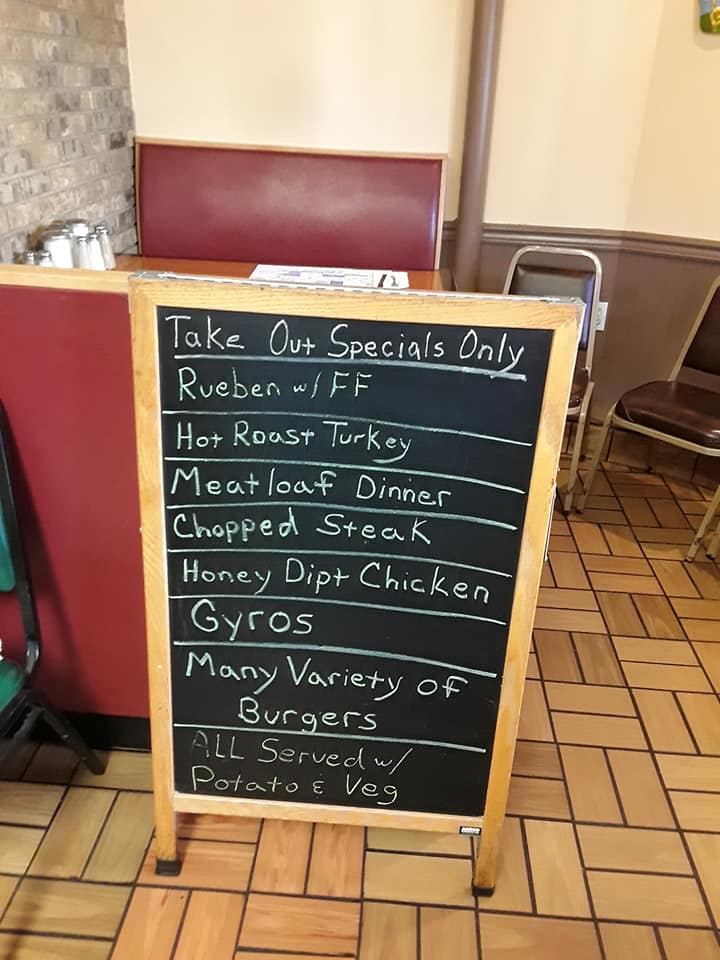 Take Out Specials Only
Rueben w/ FF
Hot Roast Turkey
Meatloaf Dinner
Chopped Steak
Honey Dipt Chicken
Gyros
Many Variety of
Burgers
ALL Served w/
Potato & Veg